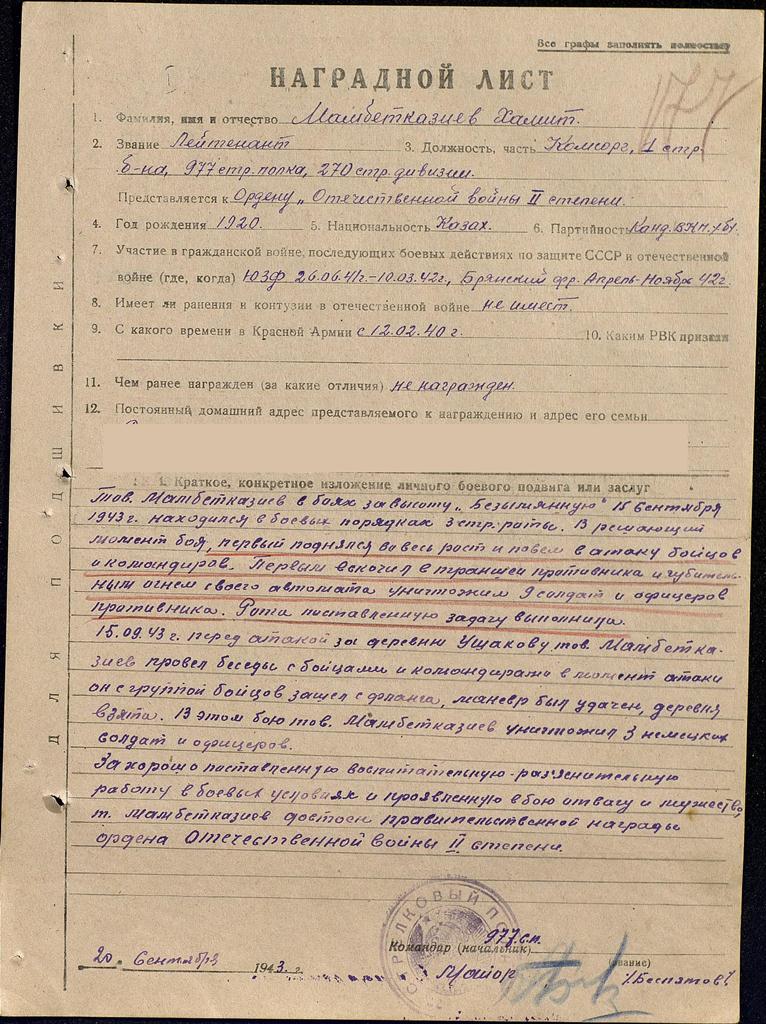 Все графы заполнять полностью
I
НАГРАДНОЙ ЛИСТ
177
1. Фамилия, имя и отчество Мамбетказиев Хамит.
2. Звание Лейтенант 3. Должность, часть Комсорг, 1 стр.
б-на, 977 стр. полка, 270 стр. дивизии.
Представляется к Ордену „Отечественной войны II степени.
4. Год рождения 1920. 5. Национальность Казах. 6. Партийность Канд. ВКП/б/.
7. Участие в гражданской войне, последующих боевых действиях по защите СССР и отечественной
войне (где, когда) ЮЗФ 26.06.41г.-10.03.42г., Брянский фр. Апрель-Ноябрь 42г.
8. Имеет ли ранения и контузии в отечественной войне не имеет.
9. С какого времени в Красной Армии с 12.02.40 г. 10. Каким РВК призван
11. Чем ранее награжден (за какие отличия) не награжден.
12. Постоянный домашний адрес представляемого к награждению и адрес его семьи
1. Краткое, конкретное изложение личного боевого подвига или заслуг
Тов. Мамбетказиев в боях за высоту „Безымянную" 15 сентября
1943г. находился в боевых порядках 3 стр. роты. В решающий
момент боя, первый поднялся во весь рост и повел в атаку бойцов
и командиров. Первым вскочил в траншеи противника и губитель-
ным огнем своего автомата уничтожил 9 солдат и офицеров
противника. Рота поставленную задачу выполнила.
15.09.43 г. перед атакой за деревню Ушакову тов. Мамбетка-
зиев провел беседы с бойцами и командирами в момент атаки
он с группой бойцов зашел с фланга, маневр был удачен, деревня
взята. В этом бою тов. Мамбетказиев уничтожил 3 немецких
солдат и офицеров.
За хорошо поставленную воспитательную-раз'яснительную
работу в боевых условиях и проявленную в бою отвагу и мужество,
т. Мамбетказиев достоен правительственной награды
ордена Отечественной войны II степени.
СТРЕЛКОВЫЙ ПО
977 с.п.
Командир (начальник)
20. Сентября 1943. г. Майор (звание) /.Беспятов/
ДЛЯ ПОДШИВКИ